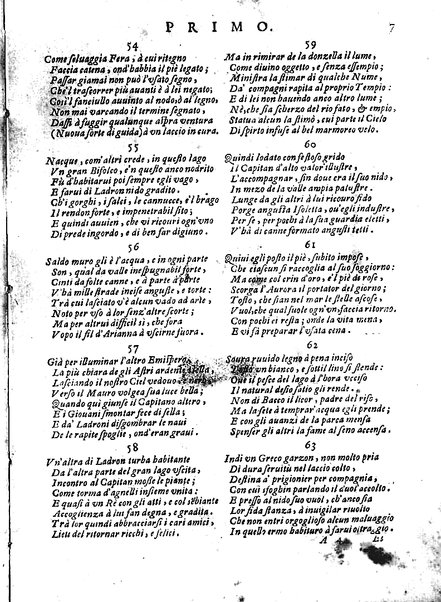 PRIMO. 7
54
Come seluaggia Fera, à cui ritegno
Faccia catena, ond'habbia il piè legato;
Passar giamai non può l'vsato segno,
Che'l trascorrer più auanti è à lei negato;
Così'l fanciullo auuinto al nodo, al legno,
Non mai varcando il termine segnato,
Dassi à fuggir qualunque aspra ventura
(Nuoua forte di guida) à vn laccio in cura.
55
Nacque, com'altri crede, in questo lago
Vn gran Bifolco, e'n questo anco nodrito
Fù d'habitarui poi sempre egli vago,
E farui di Ladron nido gradito.
Ch'i gorghi, i salci, le cannucce, e'l brago
Il rendon forte, e impenetrabil sito;
E quindi auuien, che vi ricouri ogn'vno
Di prede ingordo, e di ben far digiuno.
56
Saldo muro gli è l'acqua, e in ogni parte
Son, qual da valle inespugnabil forte,
Cinti da folte canne, e à parte à parte
V'hà mille strade inuie anguste, e torte:
Trà cui lasciato v'è alcun vado ad arte,
Noto per vso à lor senz'altre scorte;
Ma per altrui difficil sì, che fora
Vopo il fil d'Arianna à vscirne fuora.
57
Già per illuminar l'altro Emispero
La più chiara de gli Astri ardente stella,
Lasciando il nostro Ciel vedouo e nero,
Verso il Mauro volgea sua luce bella;
Quando qui giunse il Capitano altero,
E i Giouani smontar fece di sella;
E da' Ladroni disgombrar le naui
De le rapite spoglie, ond'eran graui.
58
Vn'altra di Ladron turba habitante
Da l'altra parte del gran lago vscita,
Incontro al Capitan mosse le piante;
Come torma d'agnelli insieme vnita:
E quasi à vn Rè con gli atti, e col sembiante
Accoglienza à lui fan degna, e gradita.
Trà lor quindi abbracciarsi i cari amici,
Lieti del ritornar ricchi, e felici.
59
Ma in rimirar de la donzella il lume,
Come diuino oggetto, e senza essempio;
Ministra la stimar di qualche Nume,
Da' compagni rapita al proprio Tempio:
E di lei non hauendo anco altro lume;
Nè, che sia scherzo del rio fato, ed empio,
Statua alcun la stimò, cui parte il Cielo
Di spirto infuse al bel marmoreo velo.
60
Quindi lodato con festoso grido
Il Capitan d'alto valor'illustre,
L'accompagnar, fin doue era il suo nido,
In mezo de la valle ampia palustre.
Lunge da gli altri à lui ricouro fido
Porge angusta Isoletta, ou'egli industre,
Per se, per pochi à la sua guardia eletti,
V'hà di canne formato angusti tetti.
61
Quiui egli posto il piè, subito impose,
Che ciascun si raccoglia al suo soggiorno:
Ma come col crin d'oro, e'l piè di rose,
Scorga l'Aurora il portator del giorno;
Tosto, che sian nel mar le stelle ascose,
Vuol, che qual suole ogn'vn faccia ritorno.
Con pochi ei resta; onde la vita mena,
E vi fà preparar l'vsata cena.
62
Soura ruuido legno à pena inciso
Vn bianco, e sottil lino si stende:
Que il pesce del lago à l'hora vcciso
Il natural desio satio gli rende.
Non di Bacco il licor, padre del riso,
Ma la sete à temprar'acqua egli prende;
E con gli auanzi de la parca mensa
Spenser gli altri la fame al seno accensa.
63
Indi vn Greco garzon, non molto pria
Di dura seruitù nel laccio colto,
Destina a' prigionier per compagnia,
Con cui sfoghin parlando il duol accolto.
E presso al nido suo vuol, ch'anco sia
Lor fida stanza, à inuigilar riuolto
Che non entri orgoglioso alcun maluaggio
In quello ermo habituro à farui oltraggio,
A 4 Et